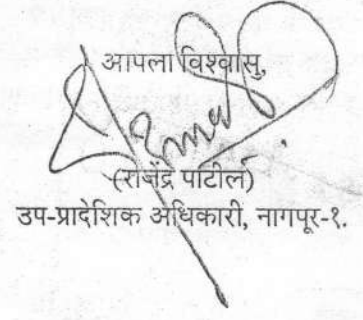 आपला विश्वासु,
(राजेंद्र पाटील)
उप-प्रादेशिक अधिकारी, नागपूर-१.